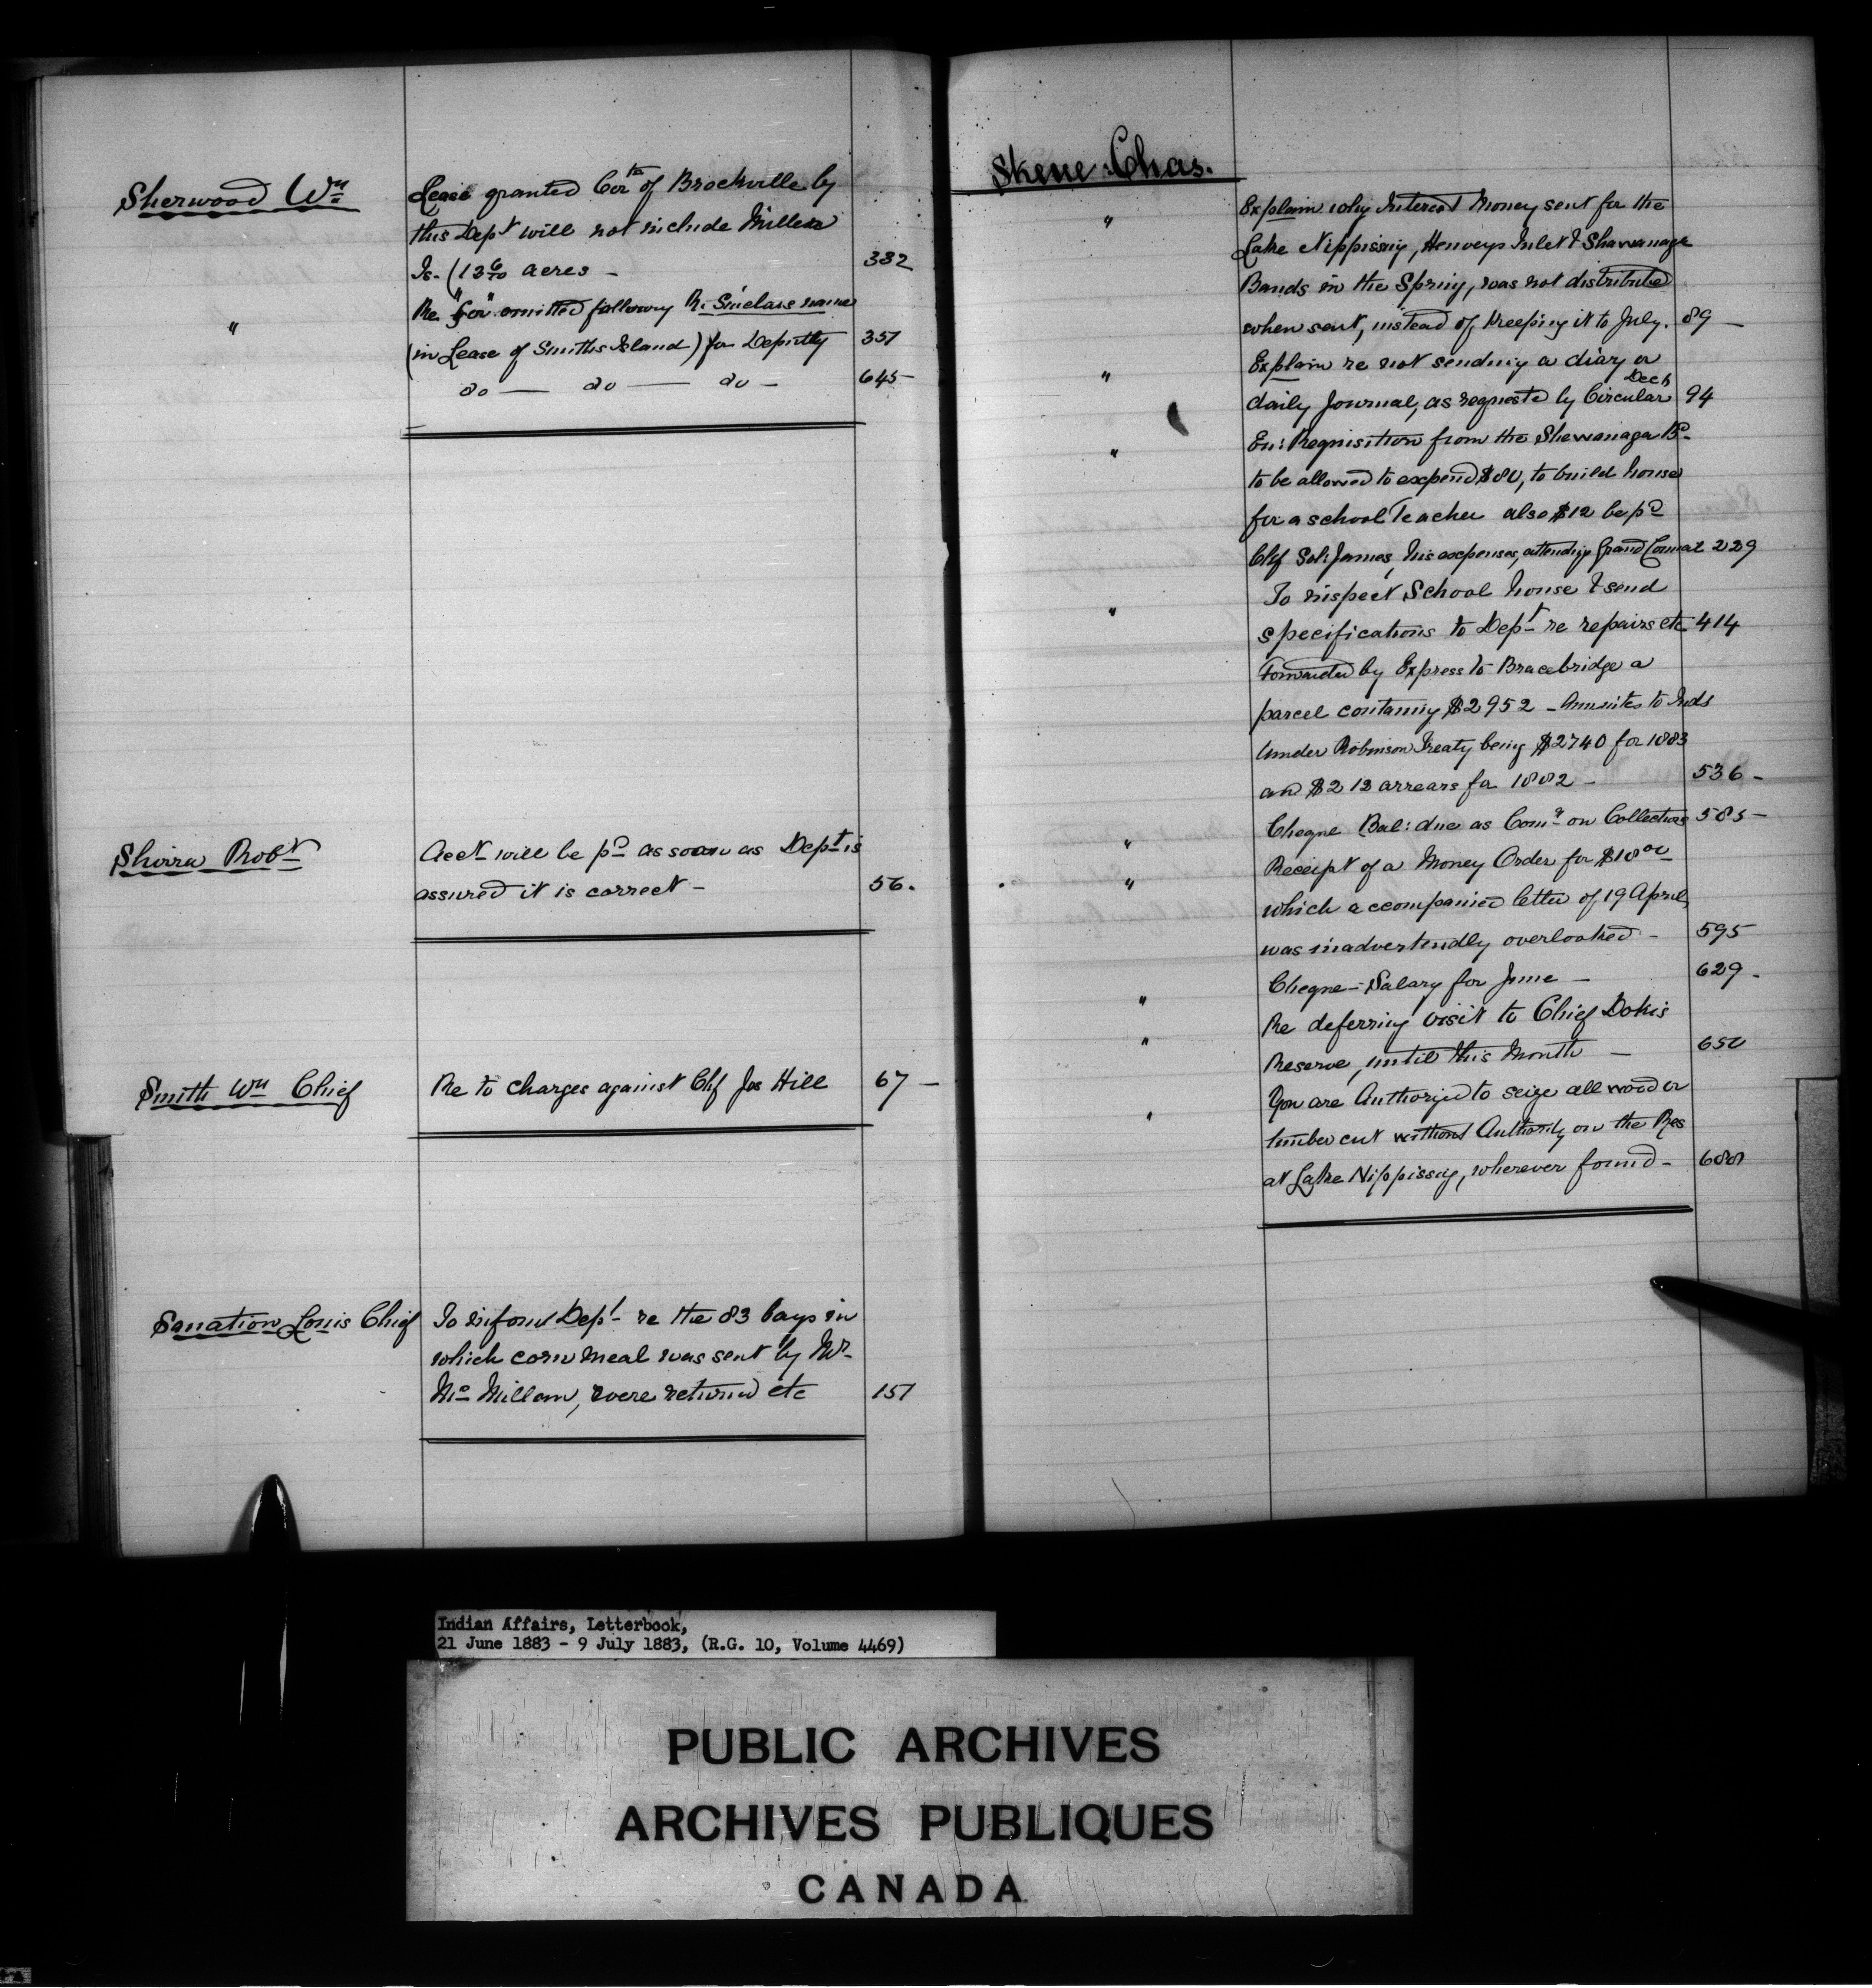 Sherwood Wm
Lease granted Cortn of Brockville by
this Dept will not include Millers
Is. (13 6/10 acres - 382
" Re "for" omitted following R. Sinclairs name
(in Lease of Smiths Island) for Deputy 351
do — do — do - 645-
Shirra Robt
Acct will be pd as soon as Dept is
assured it is correct - 56.
Smith Wm Chief Re to charges against Chf Jos Hill 67 -
Sanation Louis Chief To inform Dept re the 83 bags in
which corn meal was sent by Mr
Mc Millan, were returned etc 151
Skene Chas.
" Explain why Interest Money sent for the
Lake Nippissing, Henveys Inlet & Shawanaga
Bands in the Spring, was not distributed
when sent, instead of keeping it to July. 89 -
" Explain re not sending a diary or
daily Journal, as requested by Circular Decb 94
" En: Requisition from the Shewanaga Bd
to be allowed to expend $80, to build house
for a school Teacher also $12 be pd
Chf Sol: James, his expenses, attending Grand Council 229
" To inspect School house & send
specifications to Dept re repairs etc 414
Forwarded by Express to Bracebridge a
parcel containing $2952 - Annuites to Inds
under Robinson Treaty being $2740 for 1883
and $212 arrears for 1882 - 536 -
" Cheque Bal: due as Comn on Collections 585 -
" Receipt of a Money Order for $18 00
which accompanied letter of 19 April,
was inadvertendly overlooked - 595
" Cheque - Salary for June - 629 -
" Re deferring visit to Chief Dokis
Reserve, until this Month - 650
" You are Authorized to seize all wood or
timber cut without Authority on the Res
at Lake Nippissing, wherever found - 688
Indian Affairs, Letterbook,
21 June 1883 - 9 July 1883, (R.G. 10, Volume 4469)
PUBLIC ARCHIVES
ARCHIVES PUBLIQUES
CANADA